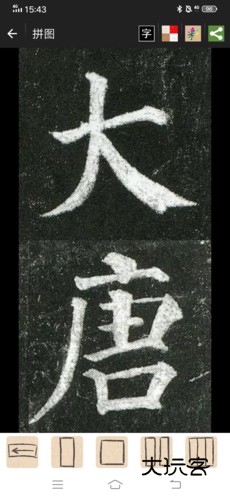 15:43
拼图
字
大
唐
大玩客